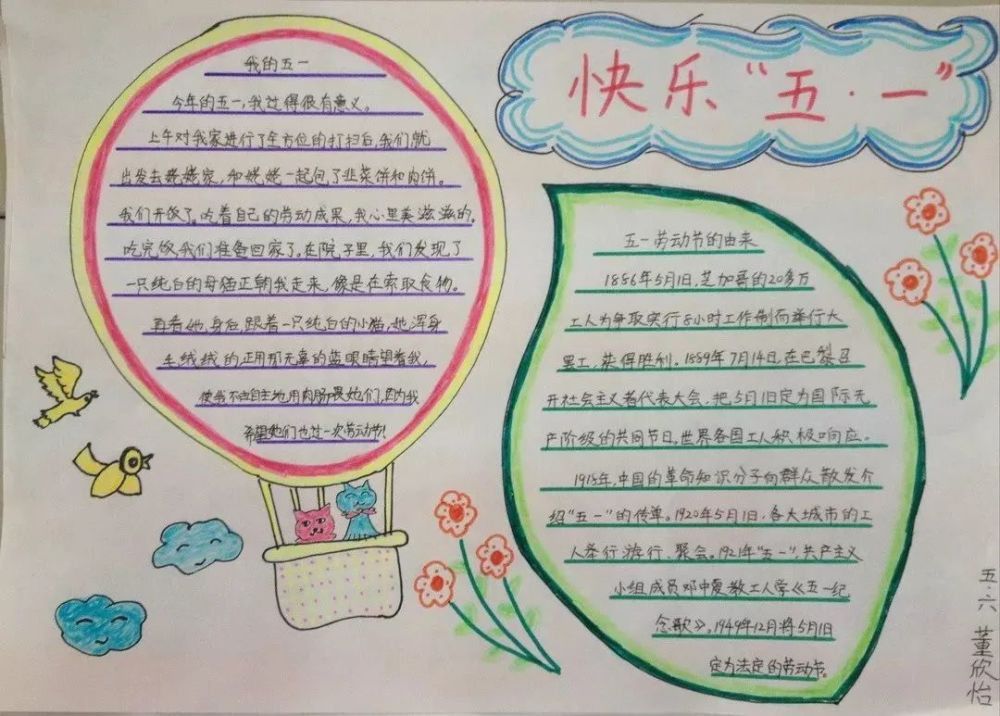 快乐“五·一”
我的五一
今年的五一,我过得很有意义。
上午对我家进行了全方位的打扫后,我们就
出发去姥姥家,和姥姥一起包了韭菜饼和肉饼。
我们开饭了。吃着自己的劳动成果,我心里美滋滋的。
吃完饭,我们准备回家了。在院子里,我们发现了
一只纯白的母猫正朝我走来,像是在索取食物。
再看她,身后跟着一只纯白的小猫,她浑身
毛绒绒的正用那无辜的蓝眼睛望着我,
使我不由自主地用肉肠喂她们,因为我
希望她们也过一次劳动节!
五一劳动节的由来
1886年5月1日,芝加哥的20多万
工人为争取实行8小时工作制而举行大
罢工,获得胜利。1889年7月14日,在巴黎召
开社会主义者代表大会,把5月1日定为国际无
产阶级的共同节日。世界各国工人积极响应。
1918年,中国的革命知识分子向群众散发介
绍“五一”的传单。1920年5月1日,各大城市的工
人举行游行、聚会。1921年“五一”,共产主义
小组成员邓中夏教工人学《五一纪
念歌》。1949年12月将5月1日
定为法定的劳动节。
五·六 董欣怡